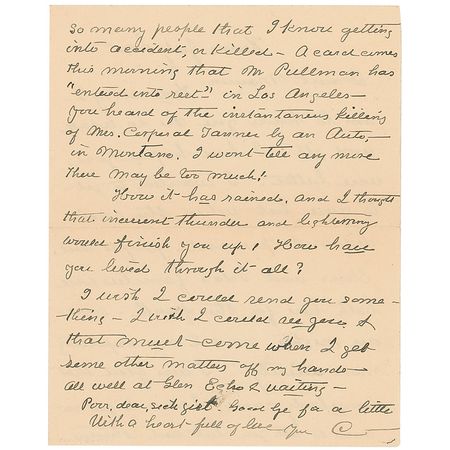 So many people that I know getting
into accident, or killed — A card comes
this morning that Mr Pullman has
"entered into rest" in Los Angeles —
You heard of the instantaneous killing
of Mrs. Corporal Tanner by an Auto,
in Montana. I wont tell any more
there may be too much!
How it has rained, and I thought
that incessant thunder and lightning
would finish you up! How have
you lived through it all?
I wish I could send you some-
thing — I wish I could see you &
that must come when I get
some other matters off my hands —
All well at Glen Echo & waiting —
Poor, dear, sick girl. Good bye for a little
With a heart full of love Yrs C —